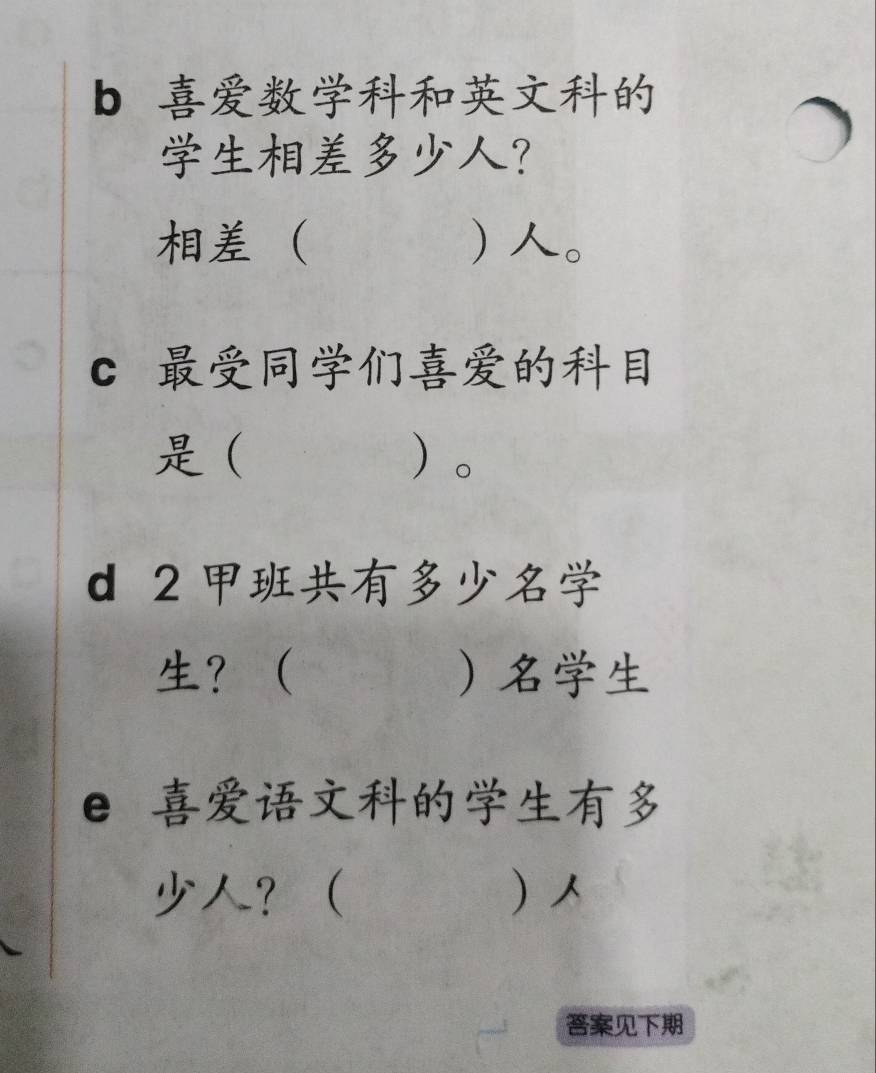 b 喜爱数学科和英文科的
学生相差多少人?
相差（ ）人。
c 最受同学们喜爱的科目
是（ ）。
d 2甲班共有多少名学
生?（ ）名学生
e 喜爱语文科的学生有多
少人?（ ）人
答案见下期